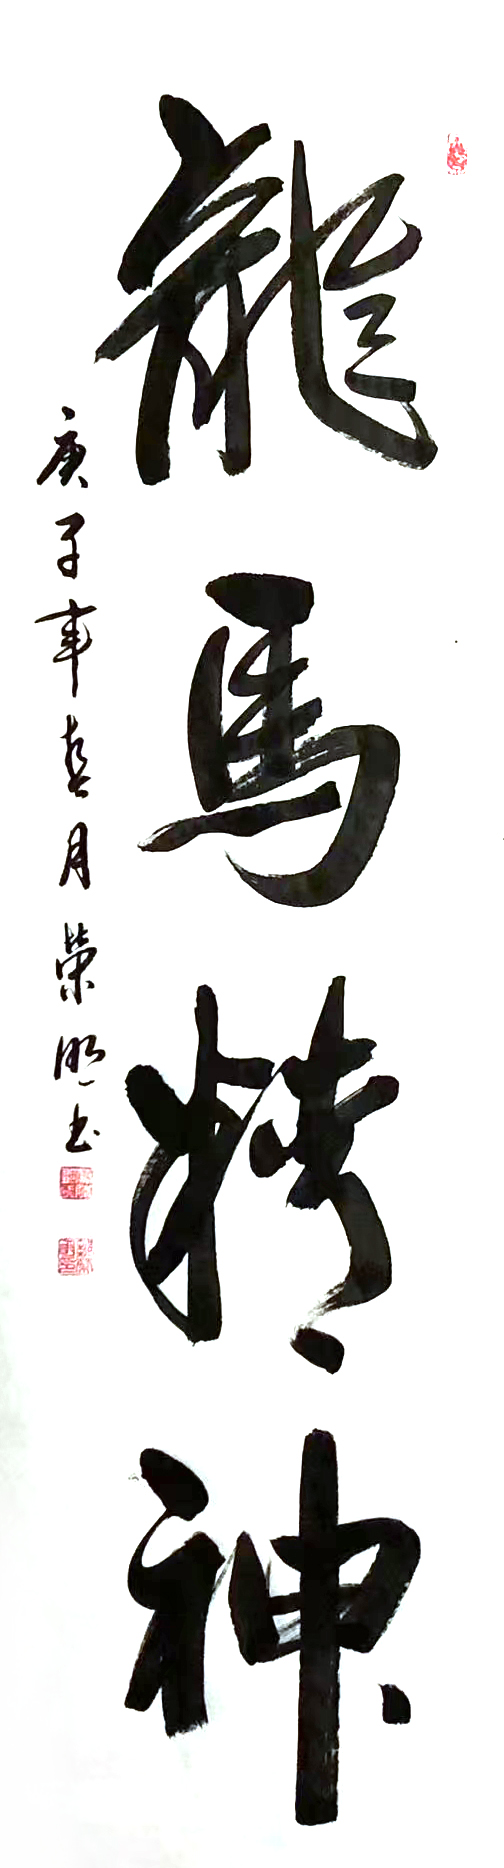 龍馬精神
庚子年春月榮明书